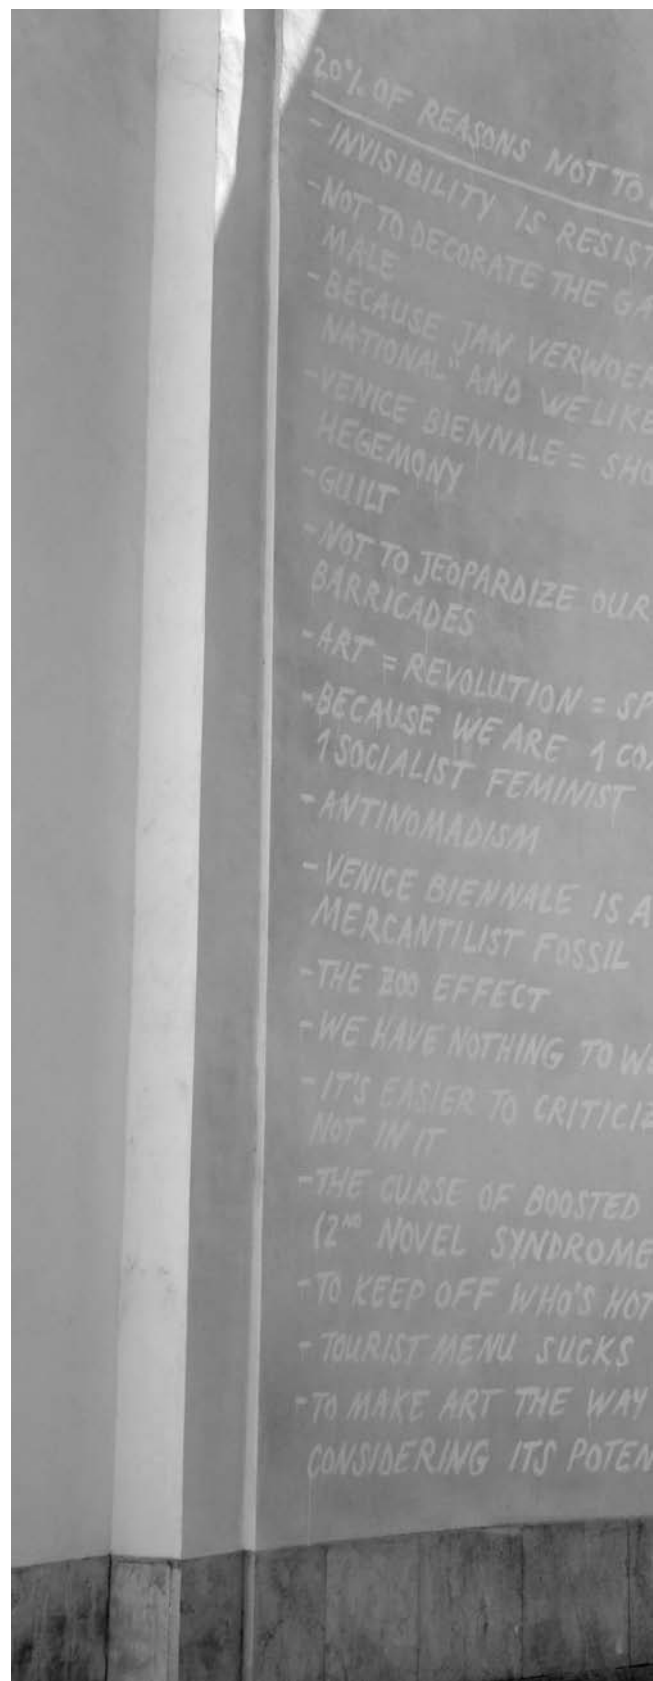 20% OF REASONS NOT TO
- INVISIBILITY IS
- NOT TO DECORATE THE
MALE
- BECAUSE JAN
NATIONAL" AND WE LIKE
- VENICE BIENNALE =
HEGEMONY
- GUILT
- NOT TO JEOPARDIZE OUR
BARRICADES
- ART = REVOLUTION =
- BECAUSE WE ARE 1
1 SOCIALIST FEMINIST
- ANTINOMADISM
- VENICE BIENNALE IS A
MERCANTILIST FOSSIL
- THE ZOO EFFECT
- WE HAVE NOTHING TO
- IT'S EASIER TO
NOT IN IT
- THE CURSE OF BOOSTED
(2ND NOVEL SYNDROME
- TO KEEP OFF WHO'S HOT
- TOURIST MENU SUCKS
- TO MAKE ART THE WAY
CONSIDERING ITS